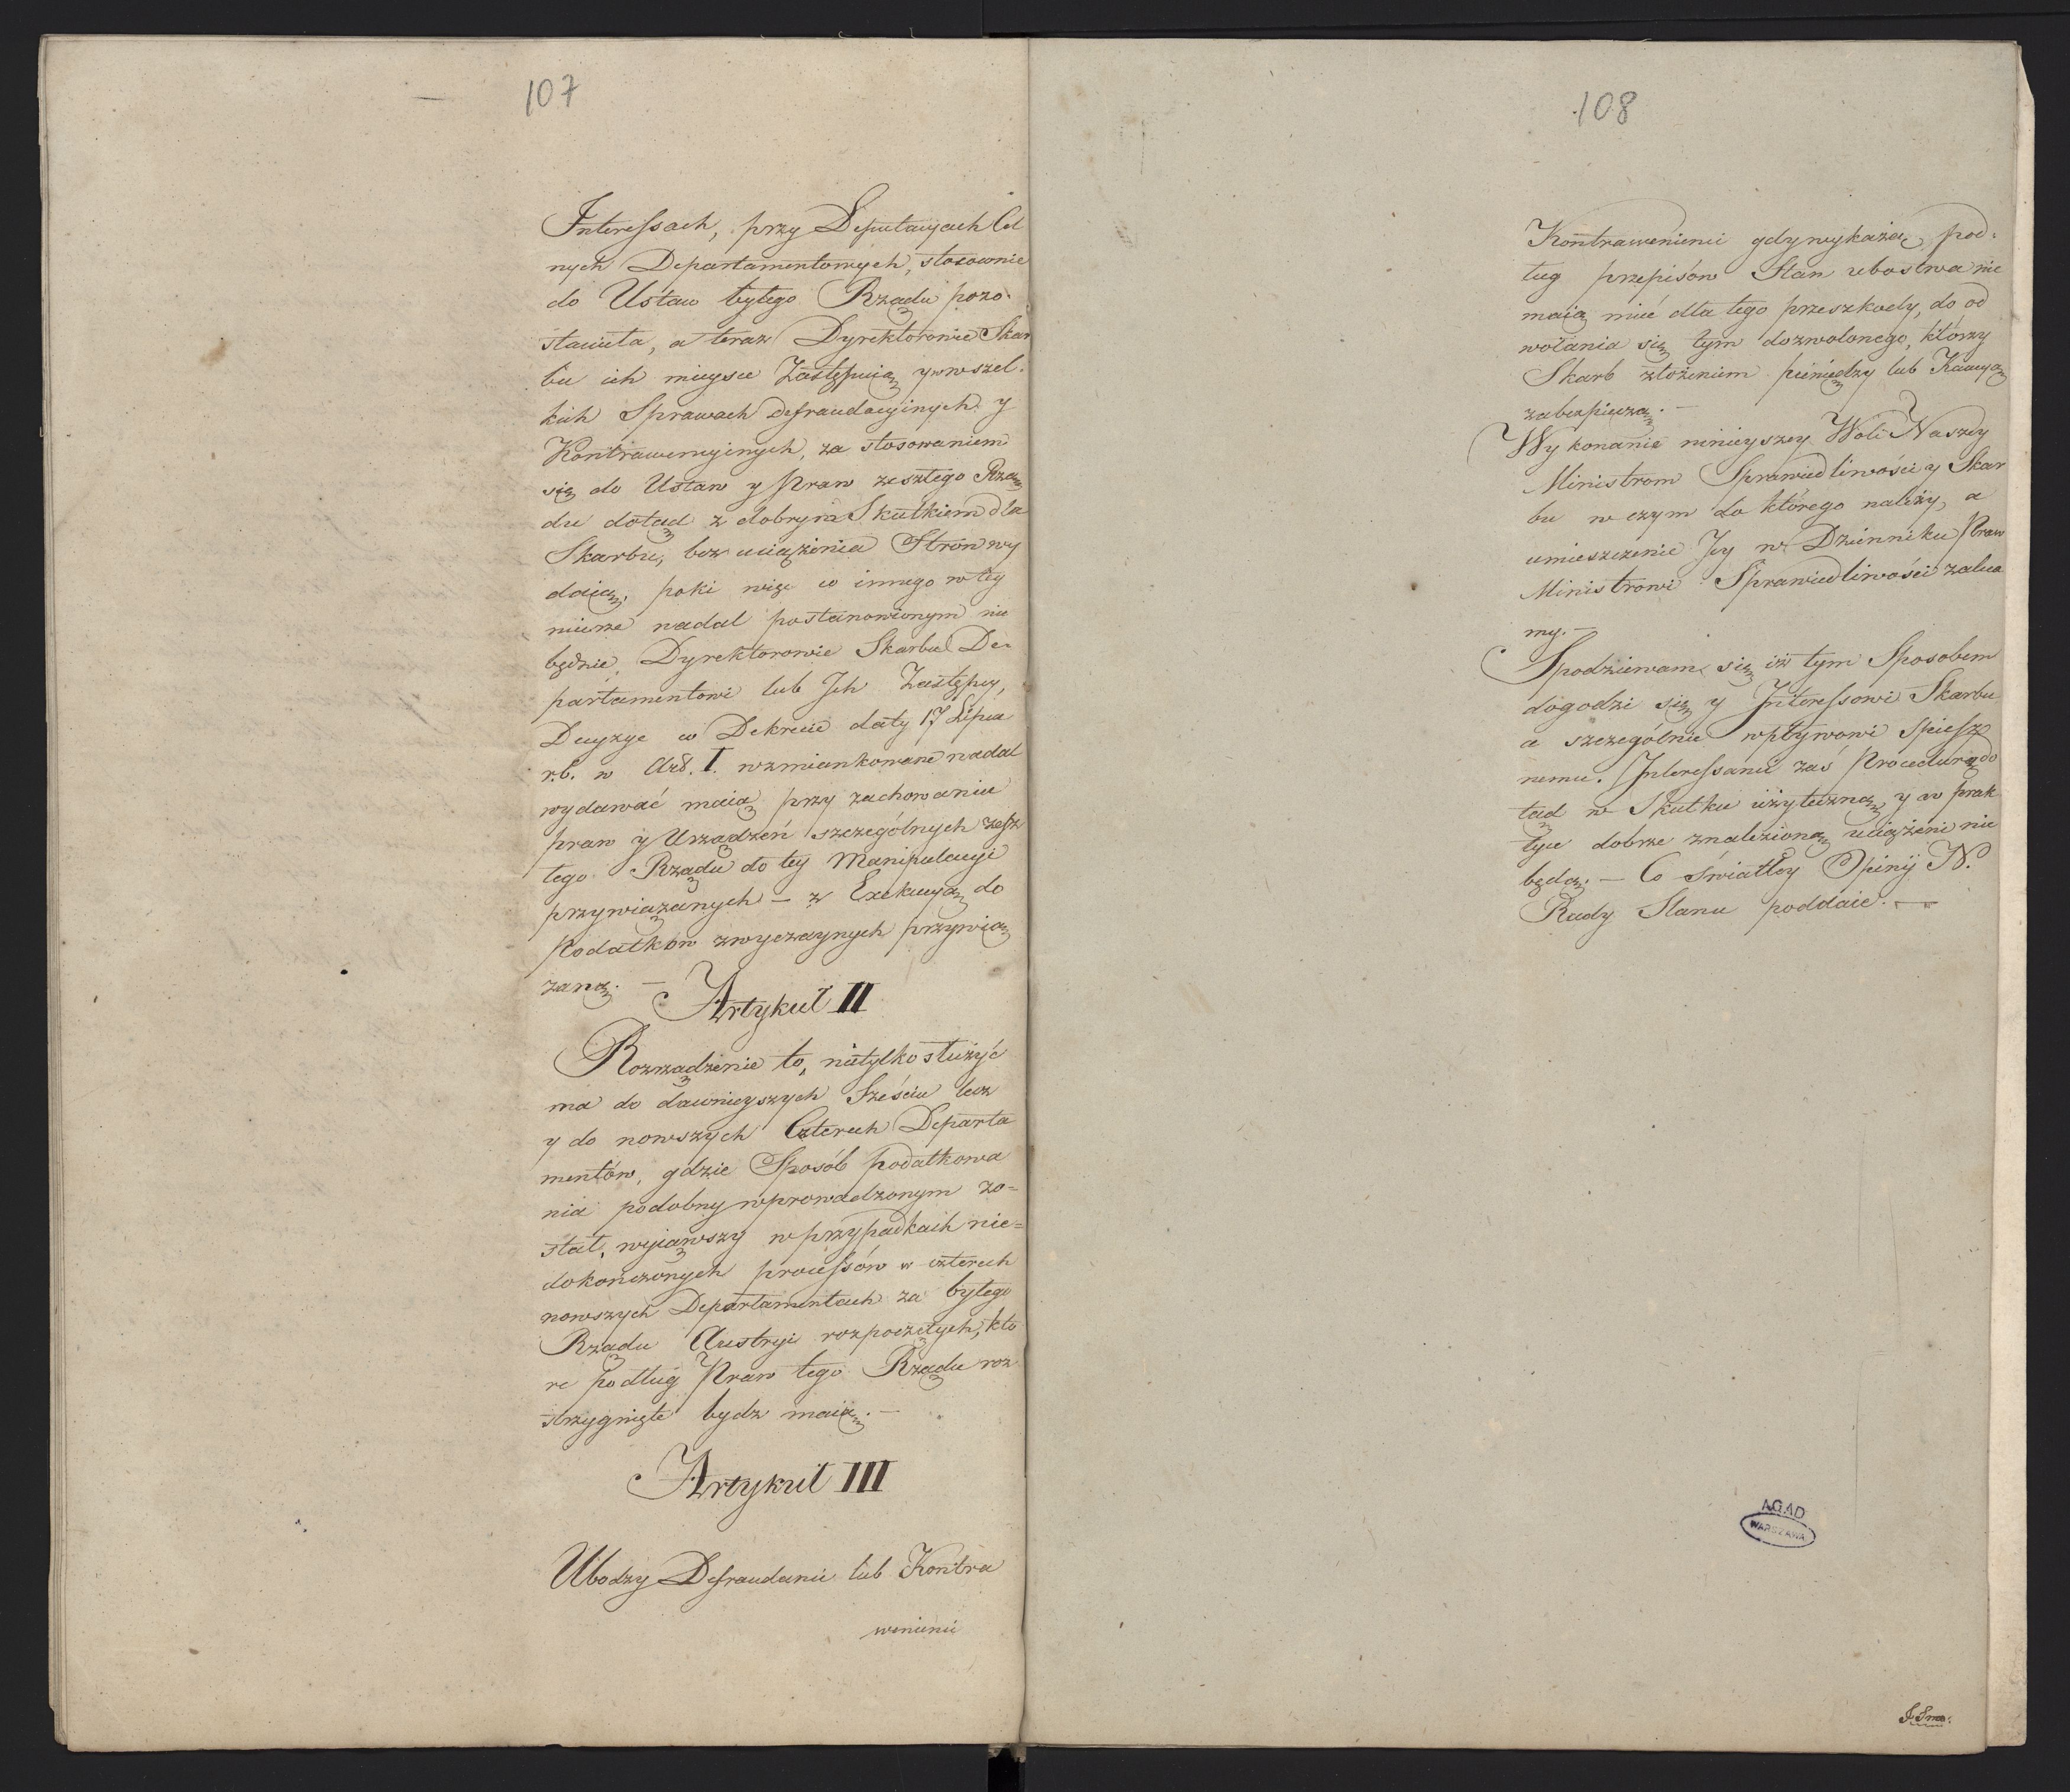 107
Interessach, przy Deputacyach Cel
nych Departamentowych, stosownie
do Ustaw byłego Rządu pozo-
stawiła, a teraz Dyrektorowie Skar
bu ich mieysce Zastępuią y w wszel-
kich Sprawach defraudacyinych y
Kontrawencyinych, za stosowaniem
się do Ustaw y Praw zeszłego Rzą
du dotąd z dobrym Skutkiem dla
Skarbu, bez uciążenia Stron wy
daią, poki więc co innego w tey
mierze nadal postanowionym nie
będzie, Dyrektorowie Skarbu De-
partamentowi lub Ich Zastępcy,
Decyzye w Dekrecie daty 17 Lipca
r.b. w Art. I. wzmiankowane nadal
wydawać maią przy zachowaniu
praw y Urządzeń szczególnych zesz
łego Rządu do tey Manipulacyi
przywiązanych – z Exekucyą do
Podatkow zwyczaynych przywią
zaną. –
Artykuł II
Rozrządzenie to, nietylko służyć
ma do dawnieyszych Sześciu lecz
y do nowszych Czterech Departa
mentów, gdzie Sposób podatkowa
nia podobny wprowadzonym zo=
stał, wyiąwszy w przypadkach nie=
dokończonych processów w czterech
nowszych Departamentach za byłego
Rządu Austryi rozpoczętych, któ
re podług Praw tego Rządu roz
strzygnięte bydz maią. –
Artykuł III
Ubodzy Defraudanci lub Kontra
wenienci
108
Kontrawenienci gdy wykażą, pod-
ług przepisów Stan ubostwa nie
maią mieć dla tego przeszkody, do od
wołania się tym dozwolonego, którzy
Skarb złożeniem pieniędzy lub Kaucyą
zabezpieczą. –
Wykonanie ninieyszey Woli Naszey
Ministrom Sprawiedliwości y Skar
bu w czym do którego należy, a
umieszczenie Jey w Dzienniku Praw
Ministrowi Sprawiedliwości zaleca
my. –
Spodziewam się iż tym Sposobem
dogodzi się y Interessowi Skarbu
a szczególnie wpływowi Spiesz
nemu. Interessanci zaś Procedurą do
tąd w Skutku użyteczną y w prak
tyce dobrze znalezioną uciążeni nie
będą. – Co światłey Opinij N.
Rady Stanu poddaie. –
AGAD
WARSZAWA